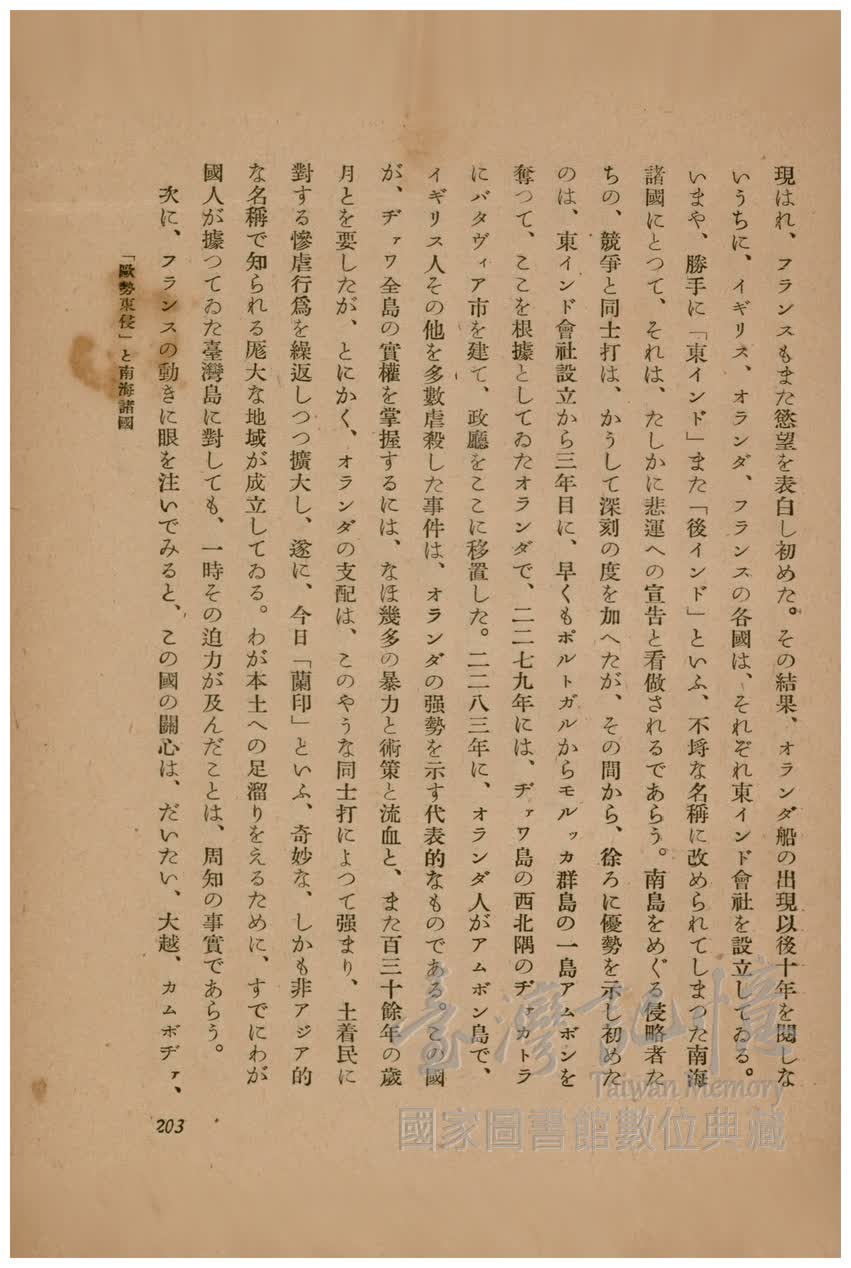 現はれ、フランスもまた慾望を表白し初めた。その結果、オランダ船の出現以後十年を閲しな
いうちに、イギリス、オランダ、フランスの各國は、それぞれ東インド會社を設立してゐる。
いまや、勝手に「東インド」また「後インド」といふ、不埓な名稱に改められてしまつた南海
諸國にとつて、それは、たしかに悲運への宣告と看做されるであらう。南島をめぐる侵略者た
ちの、競爭と同士打は、かうして深刻の度を加へたが、その間から、徐ろに優勢を示し初めた
のは、東インド會社設立から三年目に、早くもポルトガルからモルッカ群島の一島アムボンを
奪つて、ここを根據としてゐたオランダで、二二七九年には、ヂァワ島の西北隅のヂァカトラ
にバタヴィア市を建て、政廳をここに移置した。二二八三年に、オランダ人がアムボン島で、
イギリス人その他を多數虐殺した事件は、オランダの强勢を示す代表的なものである。この國
が、ヂァワ全島の實權を掌握するには、なほ幾多の暴力と術策と流血と、また百三十餘年の歲
月とを要したが、とにかく、オランダの支配は、このやうな同士打によつて强まり、土着民に
對する慘虐行爲を繰返しつつ擴大し、遂に、今日「蘭印」といふ、奇妙な、しかも非アジア的
な名稱で知られる厖大な地域が成立してゐる。わが本土への足溜りをえるために、すでにわが
國人が據つてゐた臺灣島に對しても、一時その迫力が及んだことは、周知の事實であらう。
次に、フランスの動きに眼を注いでみると、この國の關心は、だいたい、大越、カムボヂァ、
「歐勢東侵」と南海諸國
203
臺灣記憶
Taiwan Memory
國家圖書館數位典藏